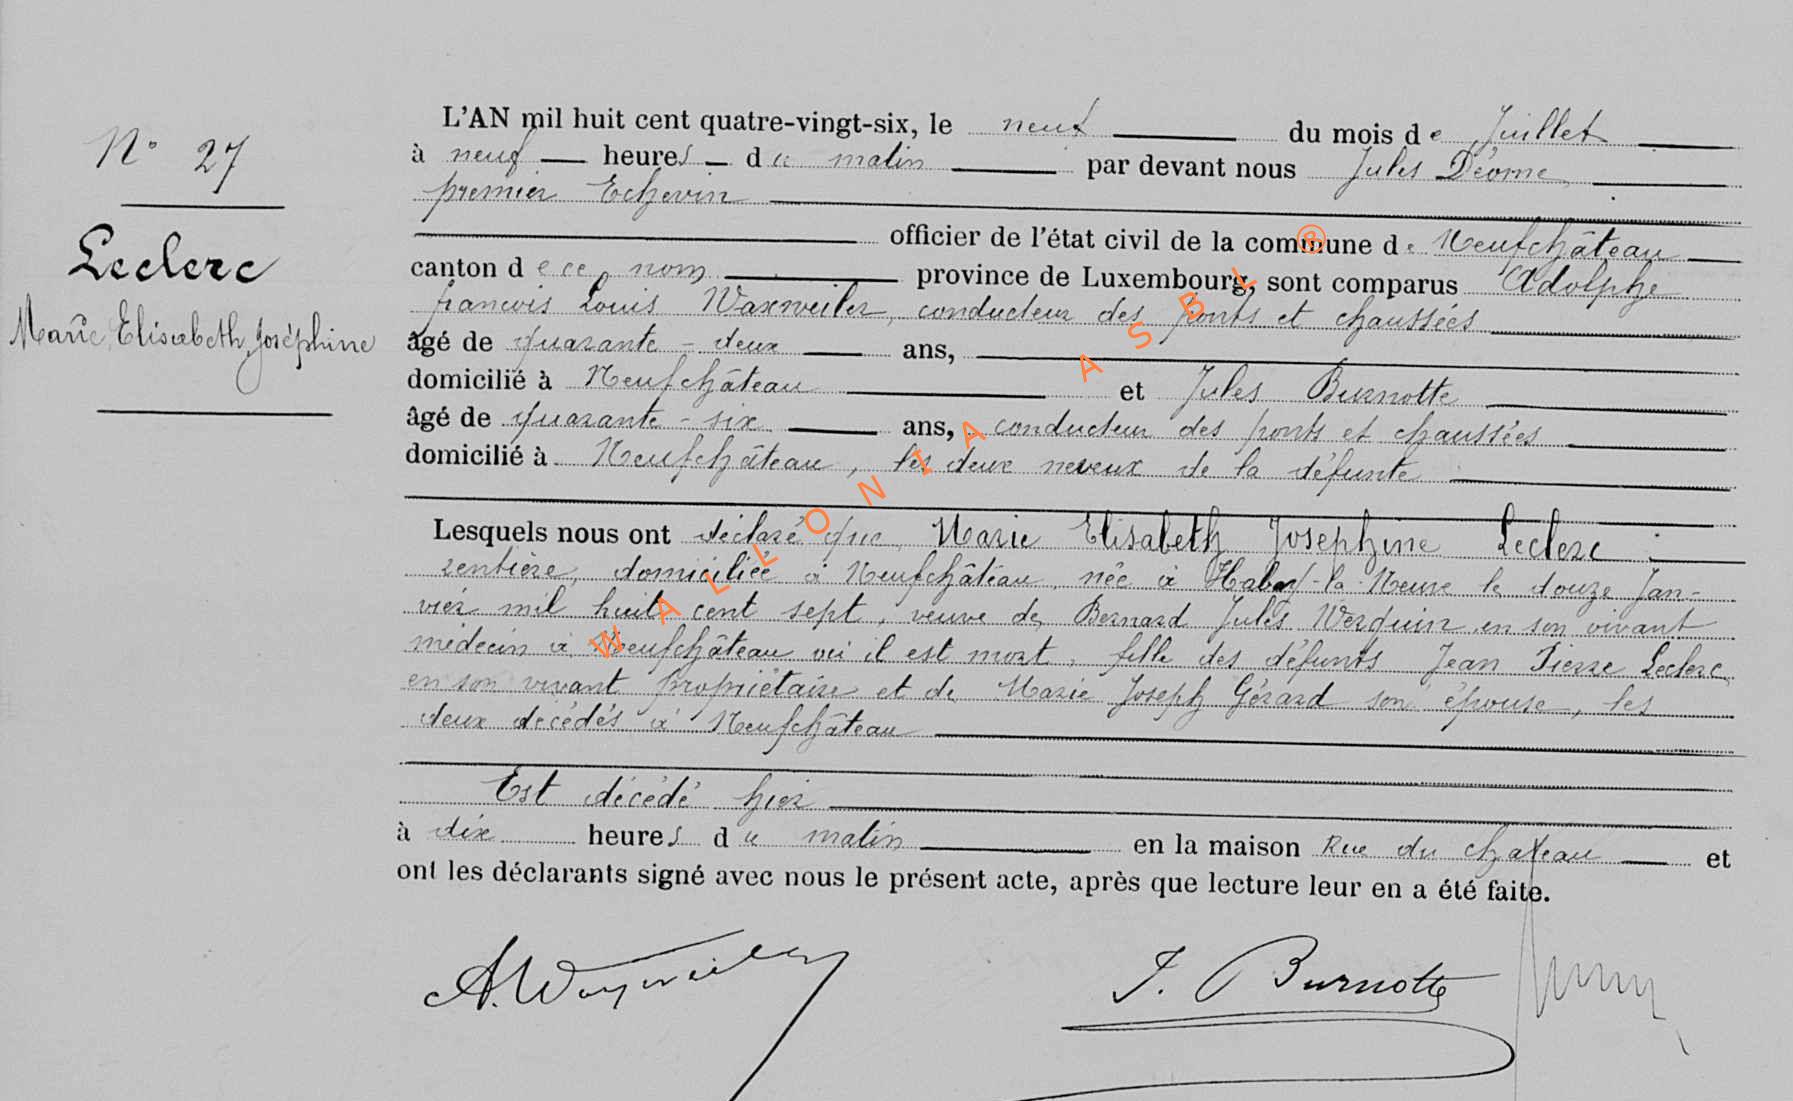 N° 27
Leclerc
Marie Elisabeth Joséphine
L'AN mil huit cent quatre-vingt-six, le neuf du mois de Juillet
à neuf heures du matin par devant nous Jules Déome,
premier Echevin
officier de l'état civil de la commune de Neufchâteau
canton de ce nom province de Luxembourg, sont comparus Adolphe
francois Louis Waxweiler, conducteur des ponts et chaussées
âgé de quarante-deux ans,
domicilié à Neufchâteau et Jules Burnotte
âgé de quarante-six ans, conducteur des ponts et chaussées
domicilié à Neufchâteau, les deux neveux de la défunte
Lesquels nous ont déclaré que Marie Elisabeth Josephine Leclerc
rentière, domiciliée à Neufchâteau, née à Habay-la-Neuve le douze Jan-
vier mil huit cent sept, veuve de Bernard Jules Werquin en son vivant
médecin à Neufchâteau où il est mort, fille des défunts Jean Pierre Leclerc
en son vivant propriétaire et de Marie Joseph Gérard son épouse, les
deux décédés à Neufchâteau
Est décédé hier
à dix heures du matin en la maison Rue du chateau et
ont les déclarants signé avec nous le présent acte, après que lecture leur en a été faite.
A. Waxweiler J. Burnotte
WALLONIA ASBL ®